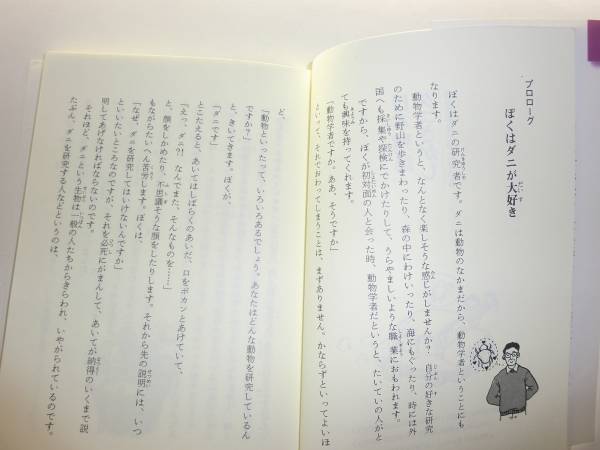 プロローグ
ぼくはダニが大好き
ぼくはダニの研究者です。ダニは動物のなかまだから、動物学者ということにも
なります。
動物学者というと、なんとなく楽しそうな感じがしませんか？ 自分の好きな研究
のために野山を歩きまわったり、森の中にわけいったり、海にもぐったり、時には外
国へも採集や探検にでかけたりして、うらやましいような職業におもわれます。
ですから、ぼくが初対面の人と会った時、動物学者だというと、たいていの人がと
ても興味を持ってくれます。
「動物学者ですか。ああ、そうですか」
といって、それでおわってしまうことは、まずありません。かならずといってよいほ
ど、
「動物といったって、いろいろあるでしょう。あなたはどんな動物を研究しているん
ですか？」
と、きいてきます。ぼくが、
「ダニです」
とこたえると、あいてはしばらくのあいだ、口をポカンとあけていて、
「えっ、ダニ⁈ なんでまた、そんなものを……」
と、顔をしかめたり、不思議そうな顔をしたりします。それから先の説明には、いつ
もながらたいへん苦労します。ぼくは、
「なぜ、ダニを研究してはいけないんですか」
といいたいところなのですが、それを必死にがまんして、あいてが納得のいくまで説
明してあげなければならないのです。
それほど、ダニという生物は一般の人たちからきらわれ、いやがられているのです。
たぶん、ダニを研究する人などというのは、